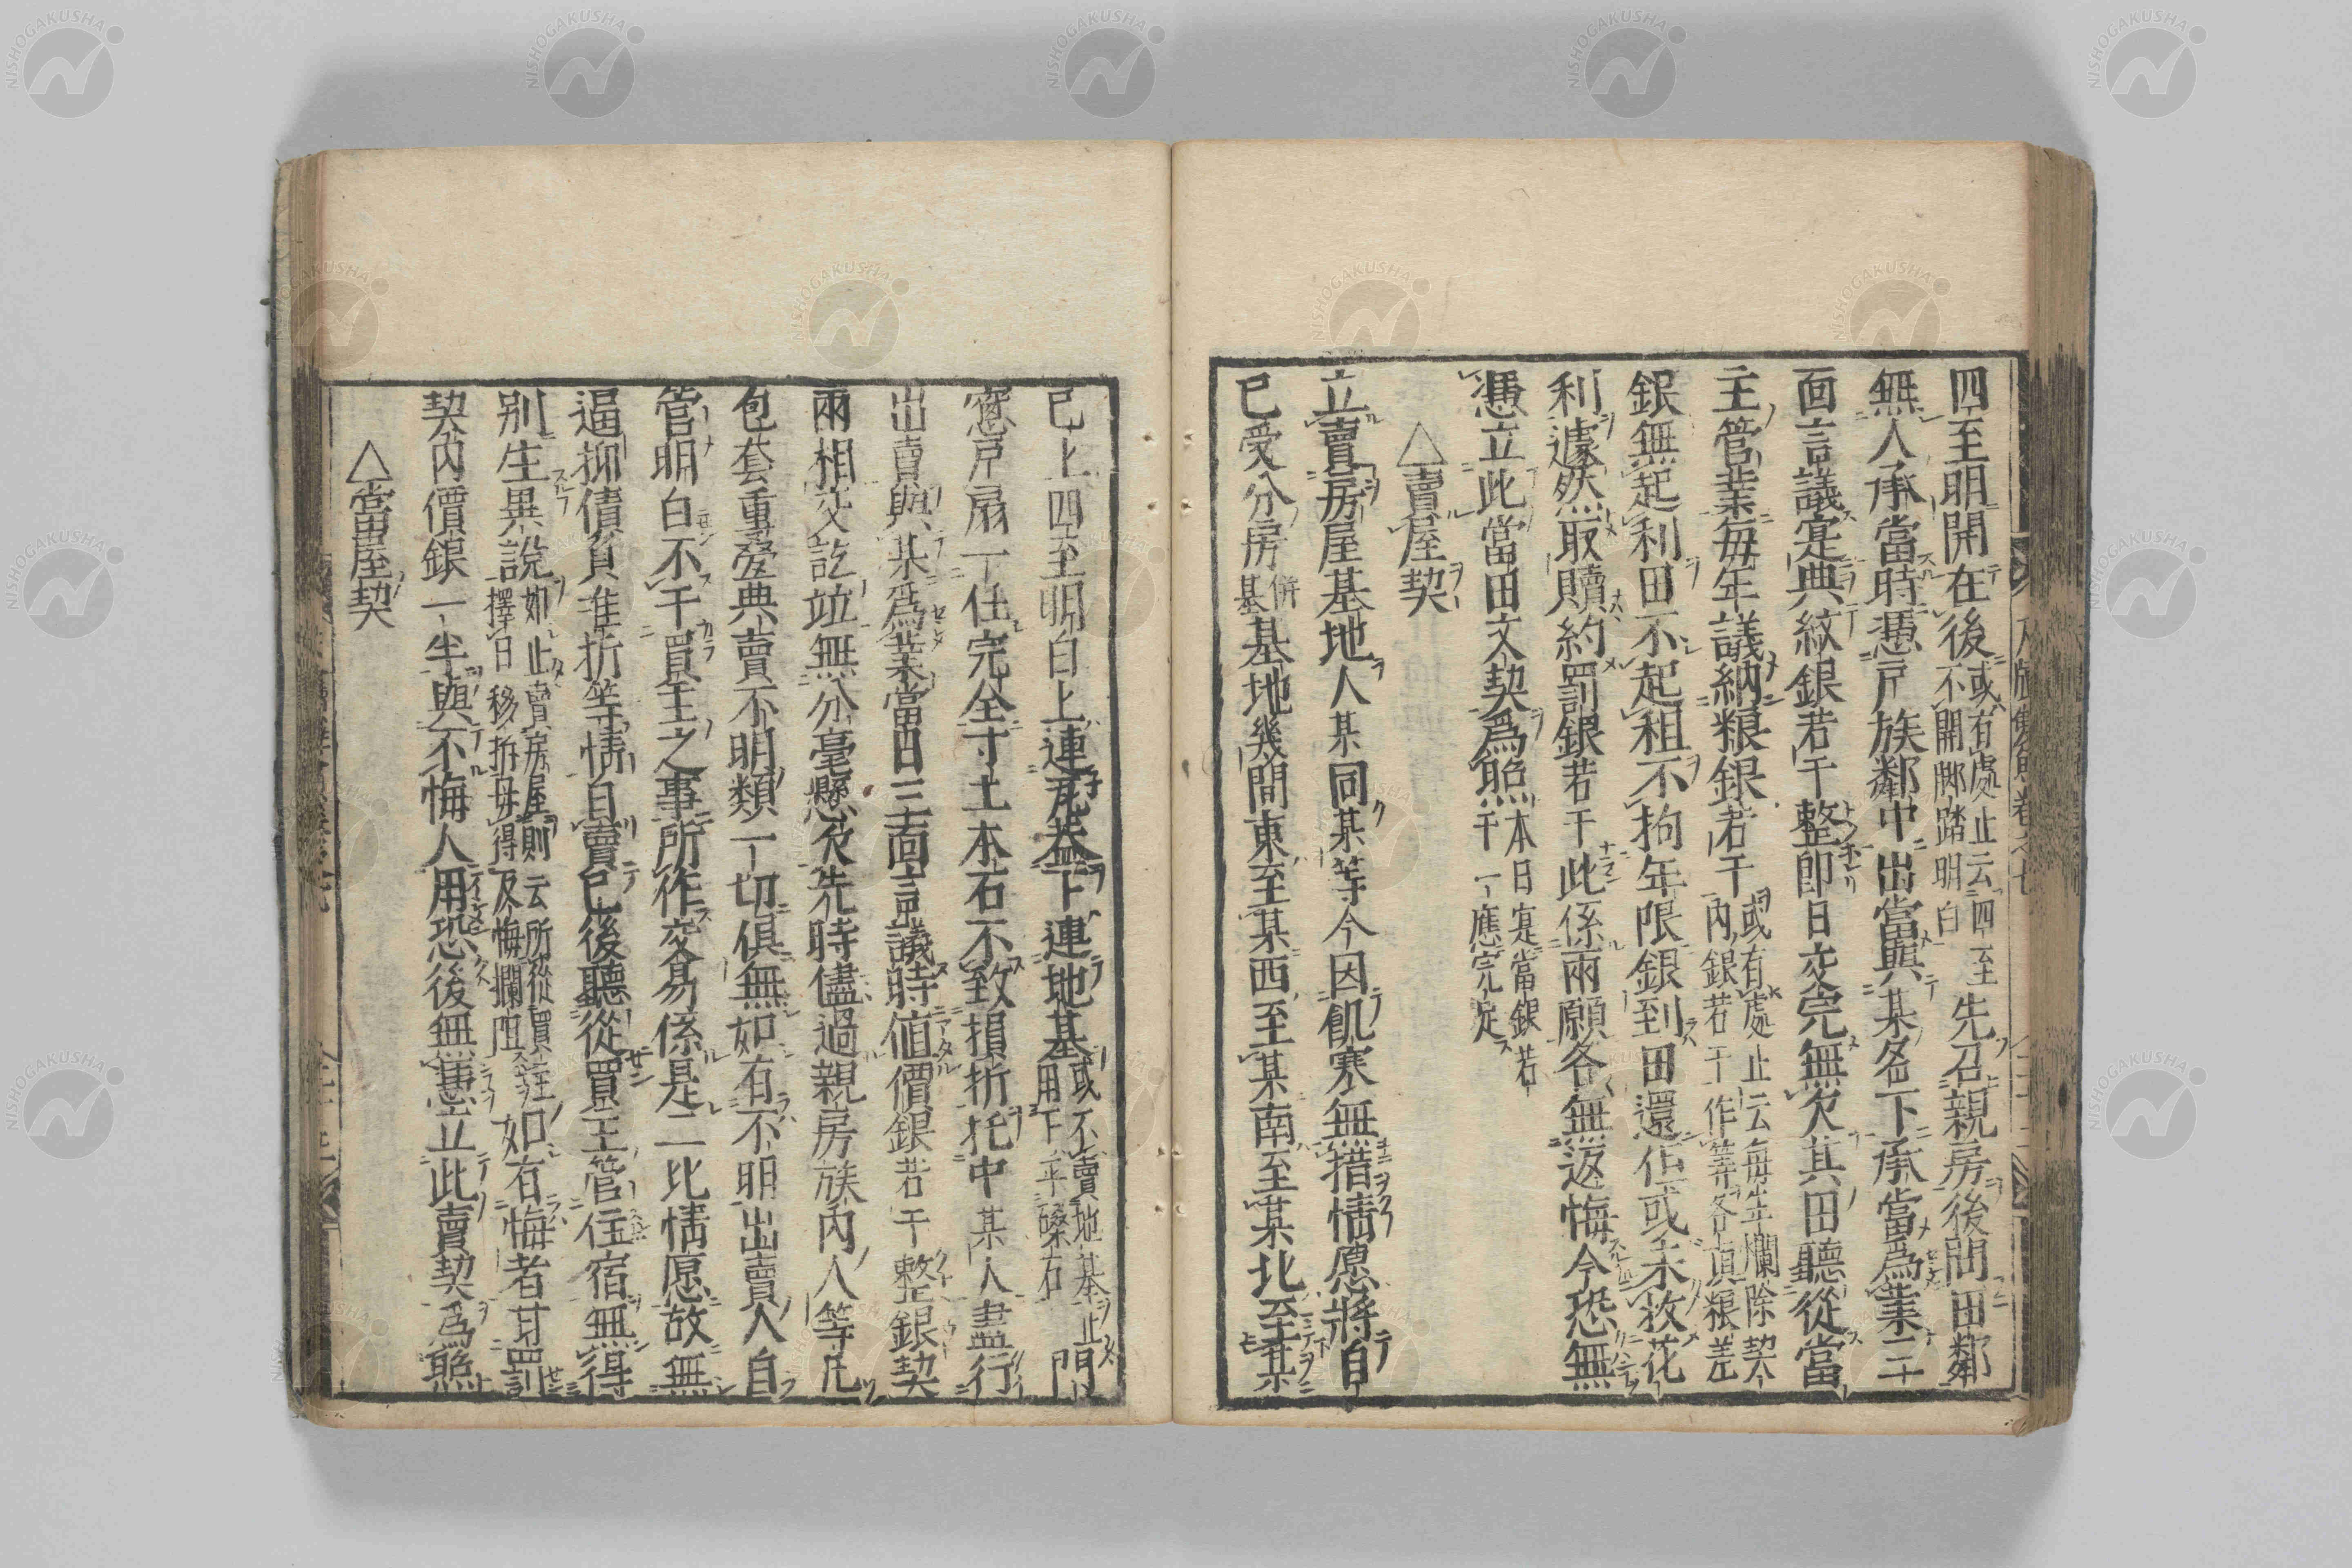 四至明開在後或有處止云四至不開脚踏明白先召親房後問田鄰
無人承當時憑戸族鄰中出當與某名下承當爲業三
面言議寔典紋銀若干整卽日交完無欠其田聽從當
主管業每年議納粮銀若干或有處止云每年欄除契內銀若干作等各項粮差
銀無起利田不起租不拘年限銀到田還佃或未收花
利遽然取贖約罰銀若干此係兩願各無返悔今恐無
憑立此當田文契爲照本日寔當銀若干一應完足
△賣屋契
立賣房屋基地人某同某等今因飢寒無措情愿將自
已受分房併基基地幾間東至某西至某南至某北至某
已上四至明白上連瓦盖下連地基或不賣地基止用下平磉石門
窓戸扇一任完全寸土本石不致損折托中某人盡行
出賣與某爲業當日三面言議時値價銀若干整銀契
兩相交訖竝無分毫懸欠先時儘過親房族內人等凡
包套重疊典賣不明類一切俱無如有不明出賣人自
管明白不干買主之事所作交易係是二比情愿故無
逼抑債負准折等情自賣已後聽從買主管住宿無得
别生異說如止賣房屋則云所從買主擇日移拆毋得及悔攔阻如有悔者甘罰
契內價銀一半與不悔人用恐後無憑立此賣契爲照
△當屋契
NISHOGAKUSHA